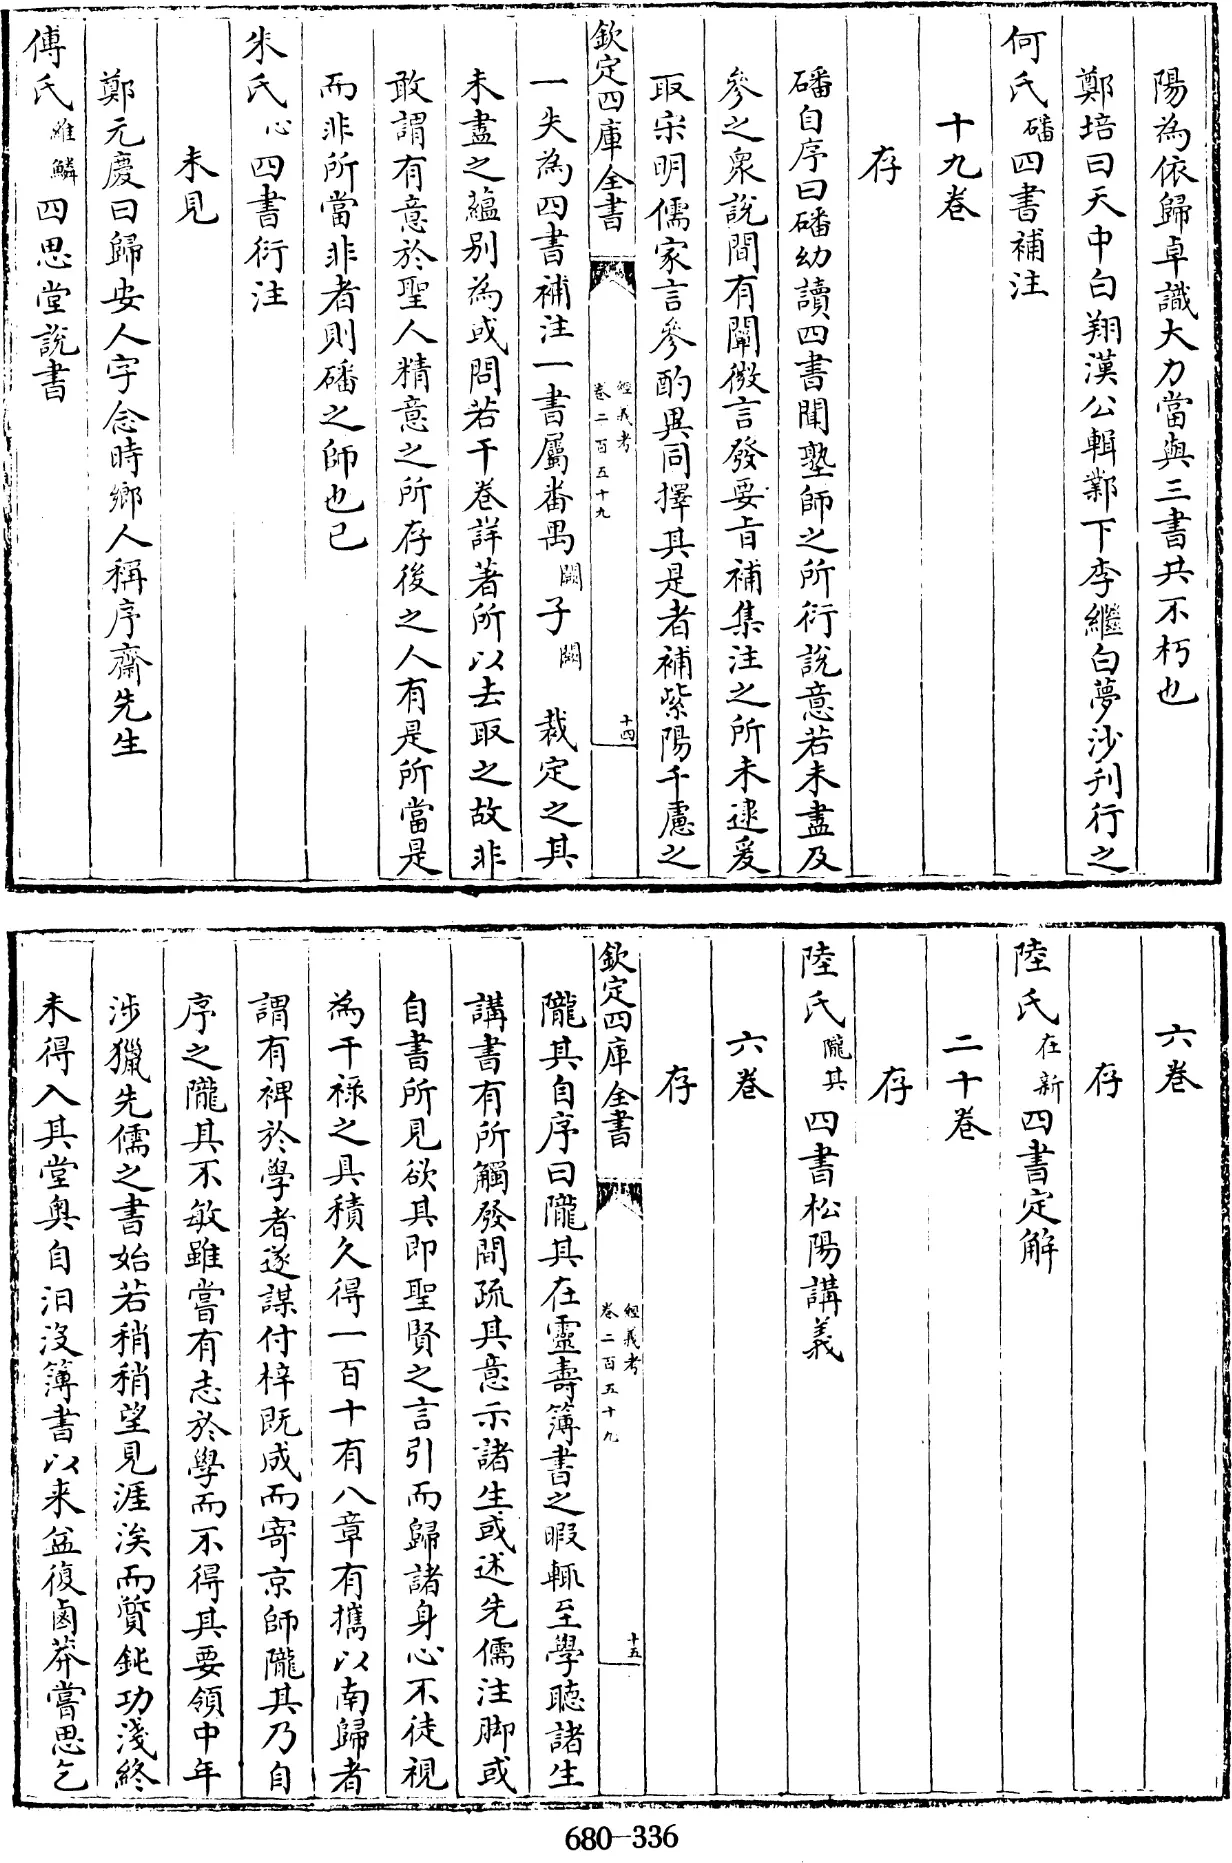 陽為依歸卓識大力當與三書共不朽也
鄭培曰天中白翔漢公輯鄴下李繼白夢沙刊行之
何氏磻四書補注
十九卷
存
磻自序曰磻幼讀四書聞塾師之所衍說意若未盡及
參之衆說間有闡微言發要旨補集注之所未逮爰
取宋明儒家言參酌異同擇其是者補紫陽千慮之
欽定四庫全書
經義考
卷二百五十九
十四
一失為四書補注一書屬番禺闕子闕裁定之其
未盡之藴别為或問若干卷詳著所以去取之故非
敢謂有意於聖人精意之所存後之人有是所當是
而非所當非者則磻之師也已
朱氏心四書衍注
未見
鄭元慶曰歸安人字念時鄉人稱序齋先生
傅氏維鱗四思堂說書
六卷
存
陸氏在新四書定解
二十卷
存
陸氏隴其四書松陽講義
六卷
存
欽定四庫全書
經義考
卷二百五十九
十五
隴其自序曰隴其在靈壽簿書之暇輒至學聽諸生
講書有所觸發間疏其意示諸生或述先儒注脚或
自書所見欲其即聖賢之言引而歸諸身心不徒視
為干祿之具積久得一百十有八章有攜以南歸者
謂有裨於學者遂謀付梓既成而寄京師隴其乃自
序之隴其不敏雖嘗有志於學而不得其要領中年
涉獵先儒之書始若稍稍望見涯涘而質鈍功淺終
未得入其堂奥自汩沒簿書以来益復鹵莽嘗思乞
680-336